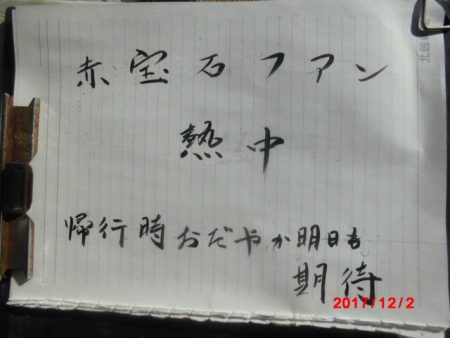 赤宝石ファン
熱中
帰行時おだやか明日も
期待
2017/12/2